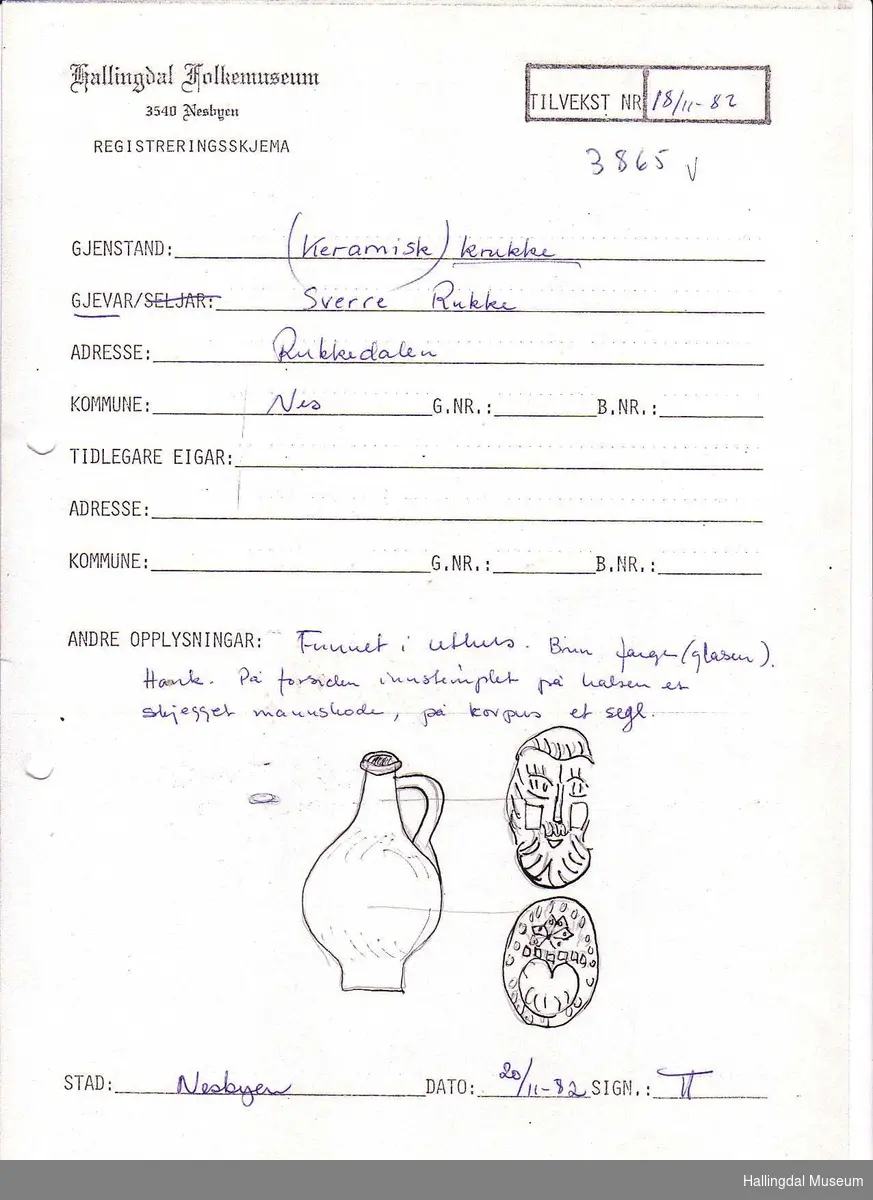 Hallingdal Folkemuseum
3540 Nesbyen
REGISTRERINGSSKJEMA
TILVEKST NR 18/11-82
3865 V
GJENSTAND: (Keramisk) krukke
GJEVAR/SELJAR: Sverre Rukke
ADRESSE: Rukkedalen
KOMMUNE: Nes G.NR.: B.NR.:
TIDLEGARE EIGAR:
ADRESSE:
KOMMUNE: G.NR.: B.NR.:
ANDRE OPPLYSNINGAR: Funnet i uthus. Brun farge (glasen).
Hank. På forsiden innstemplet på halsen et
skjegget mannshode, på korpus et segl.
STAD: Nesbyen DATO: 20/11-82 SIGN.: TT
Hallingdal Museum